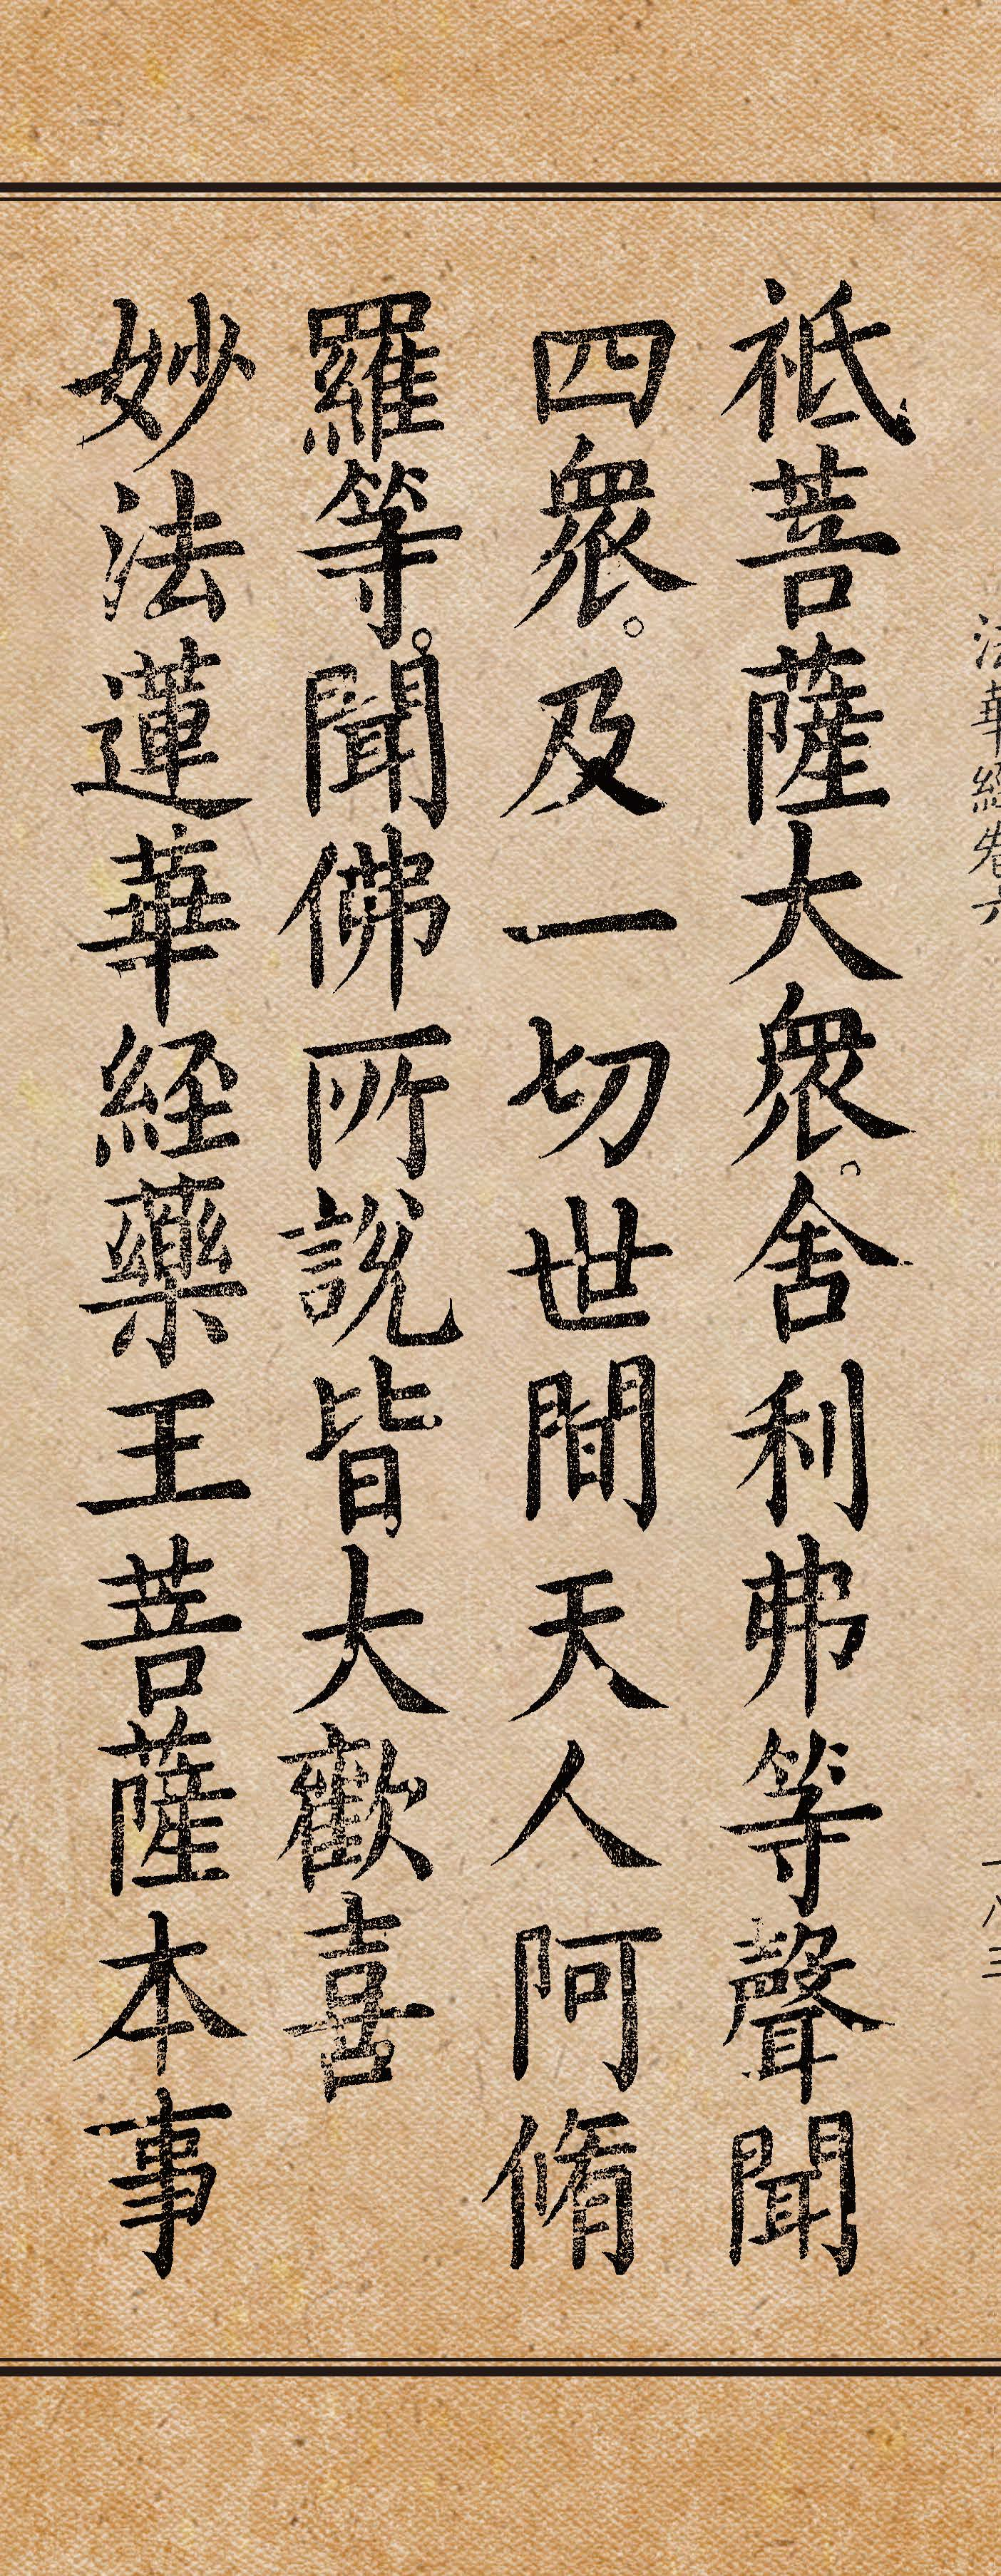 法華經卷六
祇菩薩大衆。舍利弗等聲聞
四衆。及一切世間天人阿脩
羅等。聞佛所說皆大歡喜
妙法蓮華經藥王菩薩本事